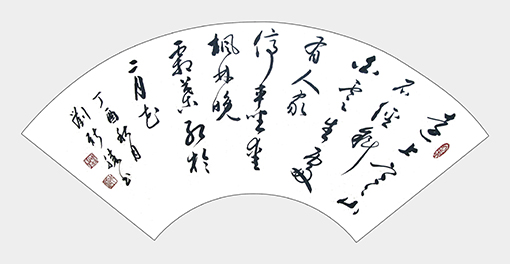 远上寒山
石径斜
白云生处
有人家
停车坐爱
枫林晚
霜叶红于
二月花
丁酉秋月